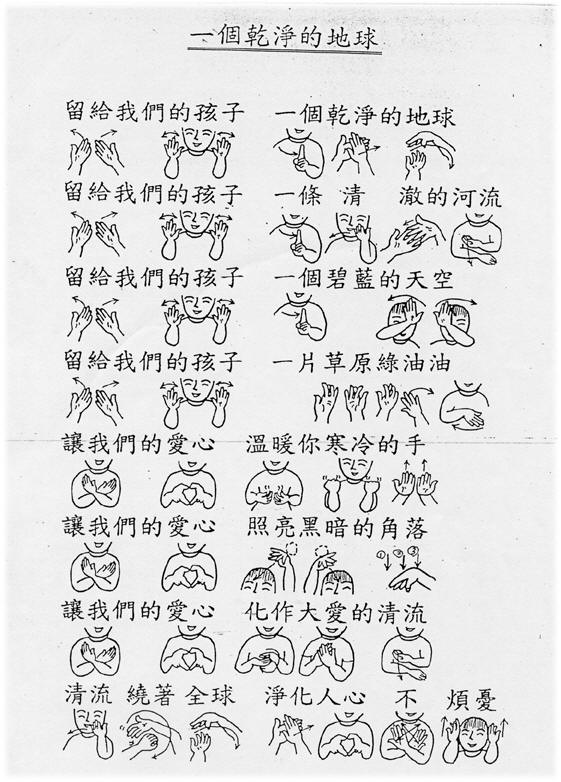 一個乾淨的地球
留給我們的孩子 一個乾淨的地球
留給我們的孩子 一條 清 澈的河流
留給我們的孩子 一個碧藍的天空
留給我們的孩子 一片草原綠油油
讓我們的愛心 溫暖你寒冷的手
照亮黑暗的角落
讓我們的愛心 照亮黑暗的角落
讓我們的愛心 化作大愛的清流
清流 繞著 全球 淨化人心 不 煩憂